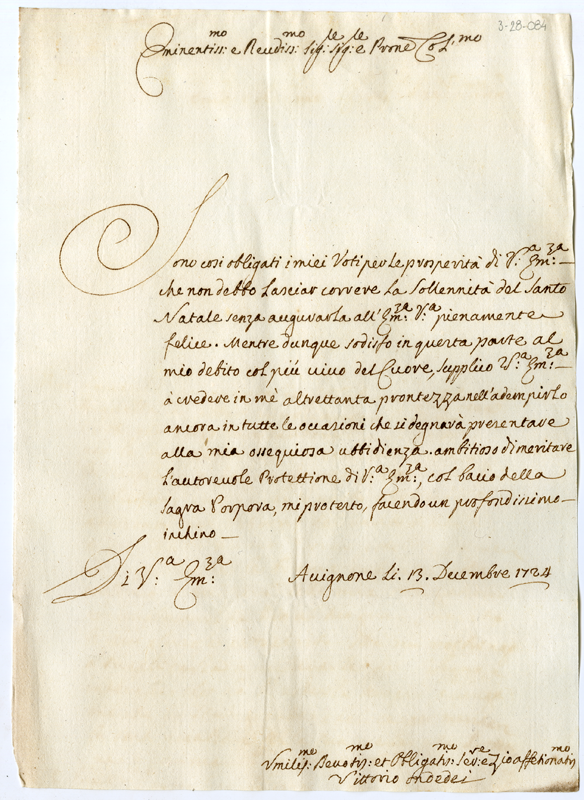 3-28-084
Eminentiss:mo e Reudiss:mo Sig:re Sig:re e Prone Col:mo
Sono così obligati i miei Voti per le prosperità di V:a Em:za
che non debbo lasciar correre la Sollennità del Santo
Natale senza augurarla all'Em:za V:a pienamente
felice. Mentre dunque sodisfo in questa parte al
mio debito col più viuo del Cuore, supplico V:a Em:za
à credere in mè altrettanta prontezza nell'adempirlo
ancora in tutte le occasioni che si degnarà presentare
alla mia ossequiosa ubbidienza. ambitioso di meritare
l'autoreuole Protettione di V:a Em:za, col bacio della
Sagra Porpora, mi protesto, facendo un profondissimo
inchino
Di V:a Em:za
Auignone li. 13. Decembre 1724
Vmiliss:mo Deuotis:mo et Obligatis:mo Ser:re e zio affetionatis:mo
Vittorio ondedei